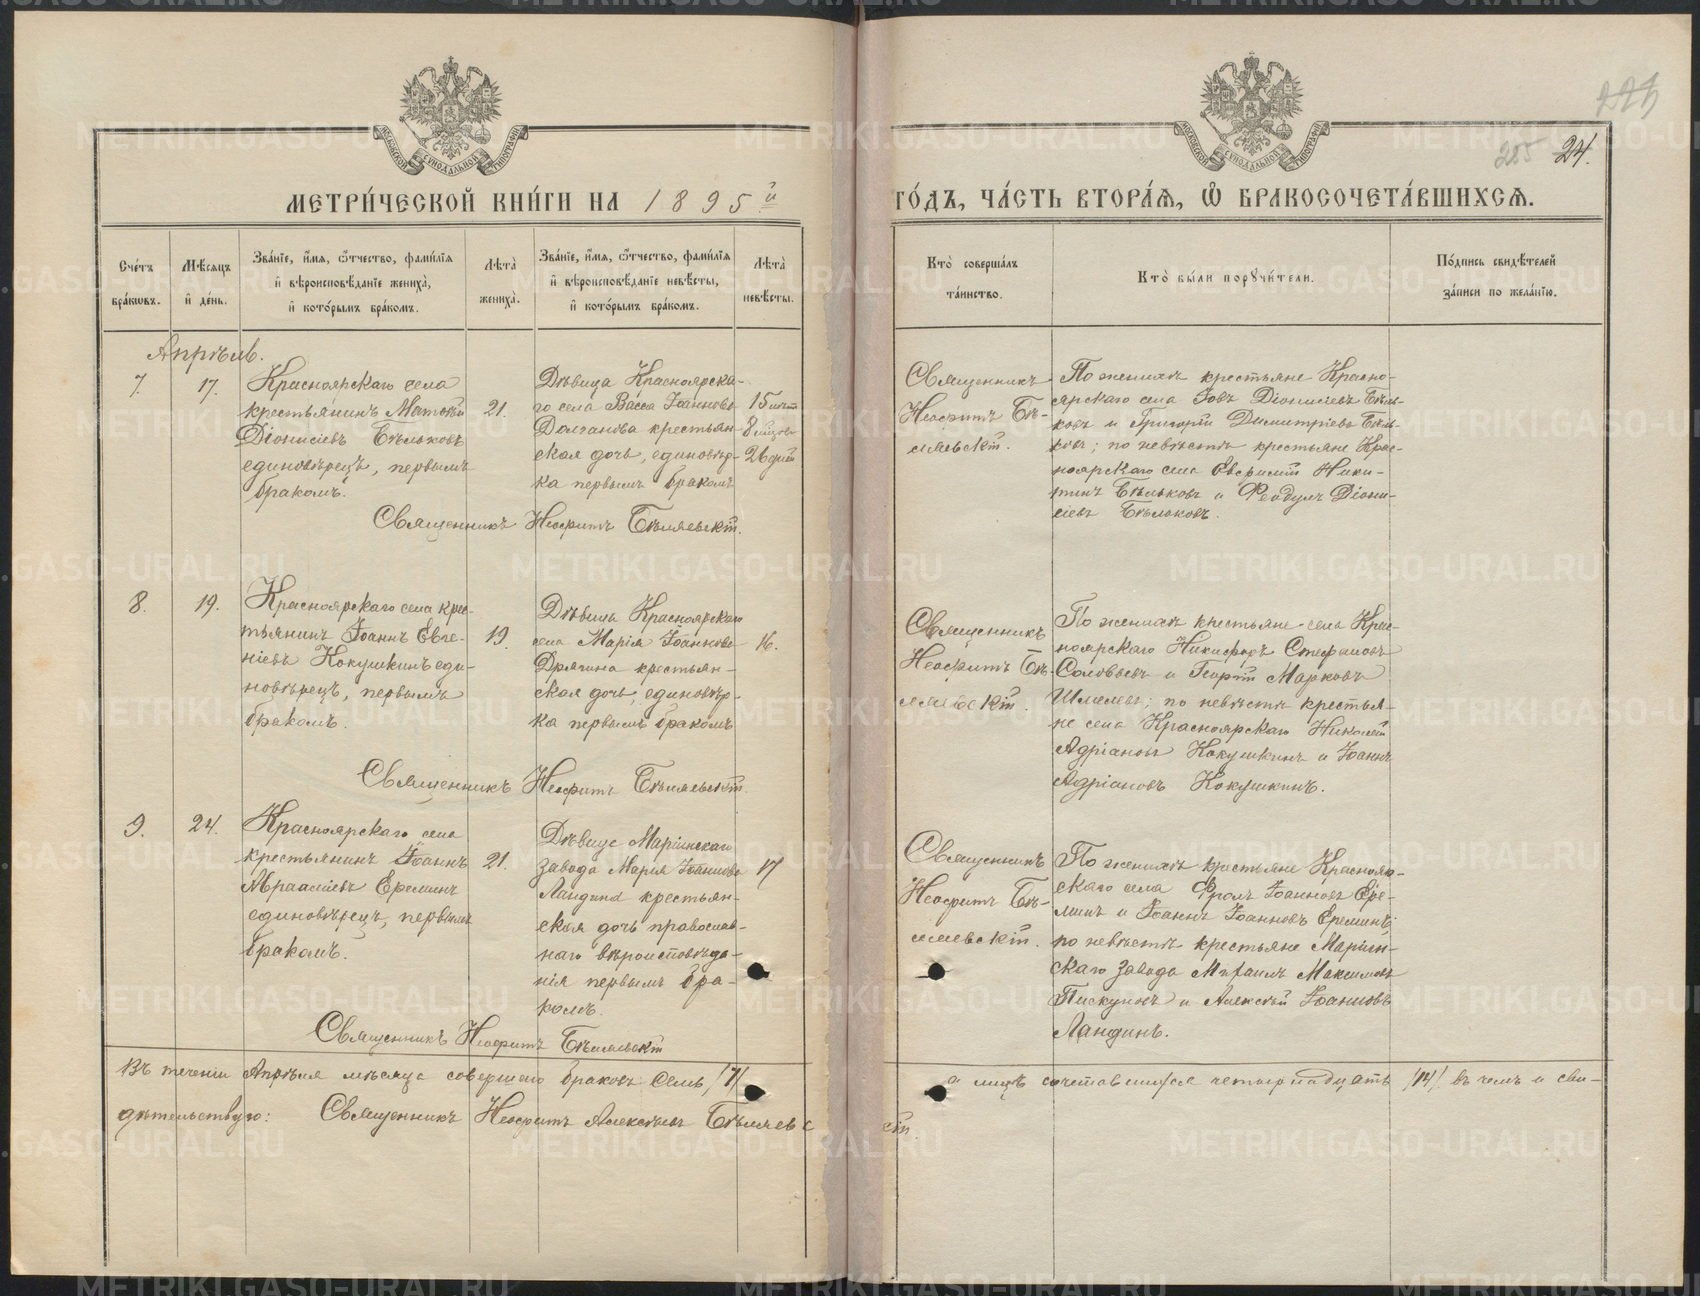 МЕТРИ́ЧЕСКОЙ КНИ́ГИ НА 1895й
ГО́ДЪ, ЧА́СТЬ ВТОРА́Я, Ѽ БРАКОСОЧЕТА́ВШИХСЯ.
МОСКОВСКОЙ СѴНОДАЛЬНОЙ ТИПОГРАФІИ
МОСКОВСКОЙ СѴНОДАЛЬНОЙ ТИПОГРАФІИ
24.
Сче́тъ бра́ковъ.
Мѣ́сяцъ и҆ де́нь.
Зва́нїе, и҆́мя, ѻ҆́тчество, фами́лїя и҆ вѣроисповѣ́данїе жениха̀, и҆ кото́рымъ бра́комъ.
Лѣ́та̀ жениха̀.
Зва́нїе, и҆́мя, ѻ҆́тчество, фами́лїя и҆ вѣроисповѣ́данїе невѣ́сты, и҆ кото́рымъ бра́комъ.
Лѣ́та̀ невѣ́сты.
Кто̀ соверша́лъ та́инство.
Кто̀ бы́ли порꙋчи́тели.
По́дпись свидѣ́телей за́писи по жела́нїю.
Апрѣль.
7.
17.
Красноярскаго села
крестьянинъ Матѳій
Діонисіевъ Бѣльковъ
единовѣрецъ, первымъ
бракомъ.
21.
Дѣвица Красноярска-
го села Васса Іоаннова
Долганова крестьян-
ская дочь, единовѣр-
ка первымъ бракомъ
15 лѣтъ
8 мѣсяц.
26 дней
Священникъ Неофитъ Бѣляевскій.
Священникъ
Неофитъ Бѣ-
ляевскій.
По женихѣ крестьяне Красно-
ярскаго села Іовъ Діонисіевъ Бѣль-
ковъ и Григорій Димитріевъ Бѣль-
ковъ; по невѣстѣ крестьяне Крас-
ноярскаго села Евфимій Ники-
тинъ Бѣльковъ и Феодулъ Діони-
сіевъ Бѣльковъ.
8.
19.
Красноярскаго села крес-
тьянинъ Іоаннъ Евге-
ніевъ Кокушкинъ еди-
новѣрецъ, первымъ
бракомъ.
19.
Дѣвица Красноярскаго
села Марія Іоаннова
Дрягина крестьян-
ская дочь, единовѣр-
ка первымъ бракомъ
16.
Священникъ Неофитъ Бѣляевскій.
Священникъ
Неофитъ Бѣ-
ляевскій.
По женихѣ крестьяне села Крас-
ноярскаго Никифоръ Стефановъ
Соловьевъ и Георгій Марковъ
Шмелевъ; по невѣстѣ крестья-
не села Красноярскаго Николай
Адріановъ Кокушкинъ и Іоаннъ
Адріановъ Кокушкинъ.
9.
24.
Красноярскаго села
крестьянинъ Іоаннъ
Авраамiевъ Ереминъ
единовѣрецъ, первымъ
бракомъ.
21.
Дѣвица Маріинскаго
завода Марія Іоаннова
Ландина крестьян-
ская дочь православ-
наго вѣроисповѣда-
нія первымъ бра-
комъ.
17
Священникъ Неофитъ Бѣляевскій
Священникъ
Неофитъ Бѣ-
ляевскій.
По женихѣ крестьяне Краснояр-
скаго села Фролъ Іоанновъ Ере-
минъ и Іоаннъ Іоанновъ Ереминъ;
по невѣстѣ крестьяне Маріин-
скаго завода Михаилъ Максимовъ
Пискуновъ и Алексѣй Іоанновъ
Ландинъ.
Въ теченіи Апрѣля мѣсяца совершено браковъ семь /7/ а лицъ сочетавшихся четырнадцать /14/ въ чемъ и сви-
дѣтельствую: Священникъ Неофитъ Алексѣевъ Бѣляевскій.